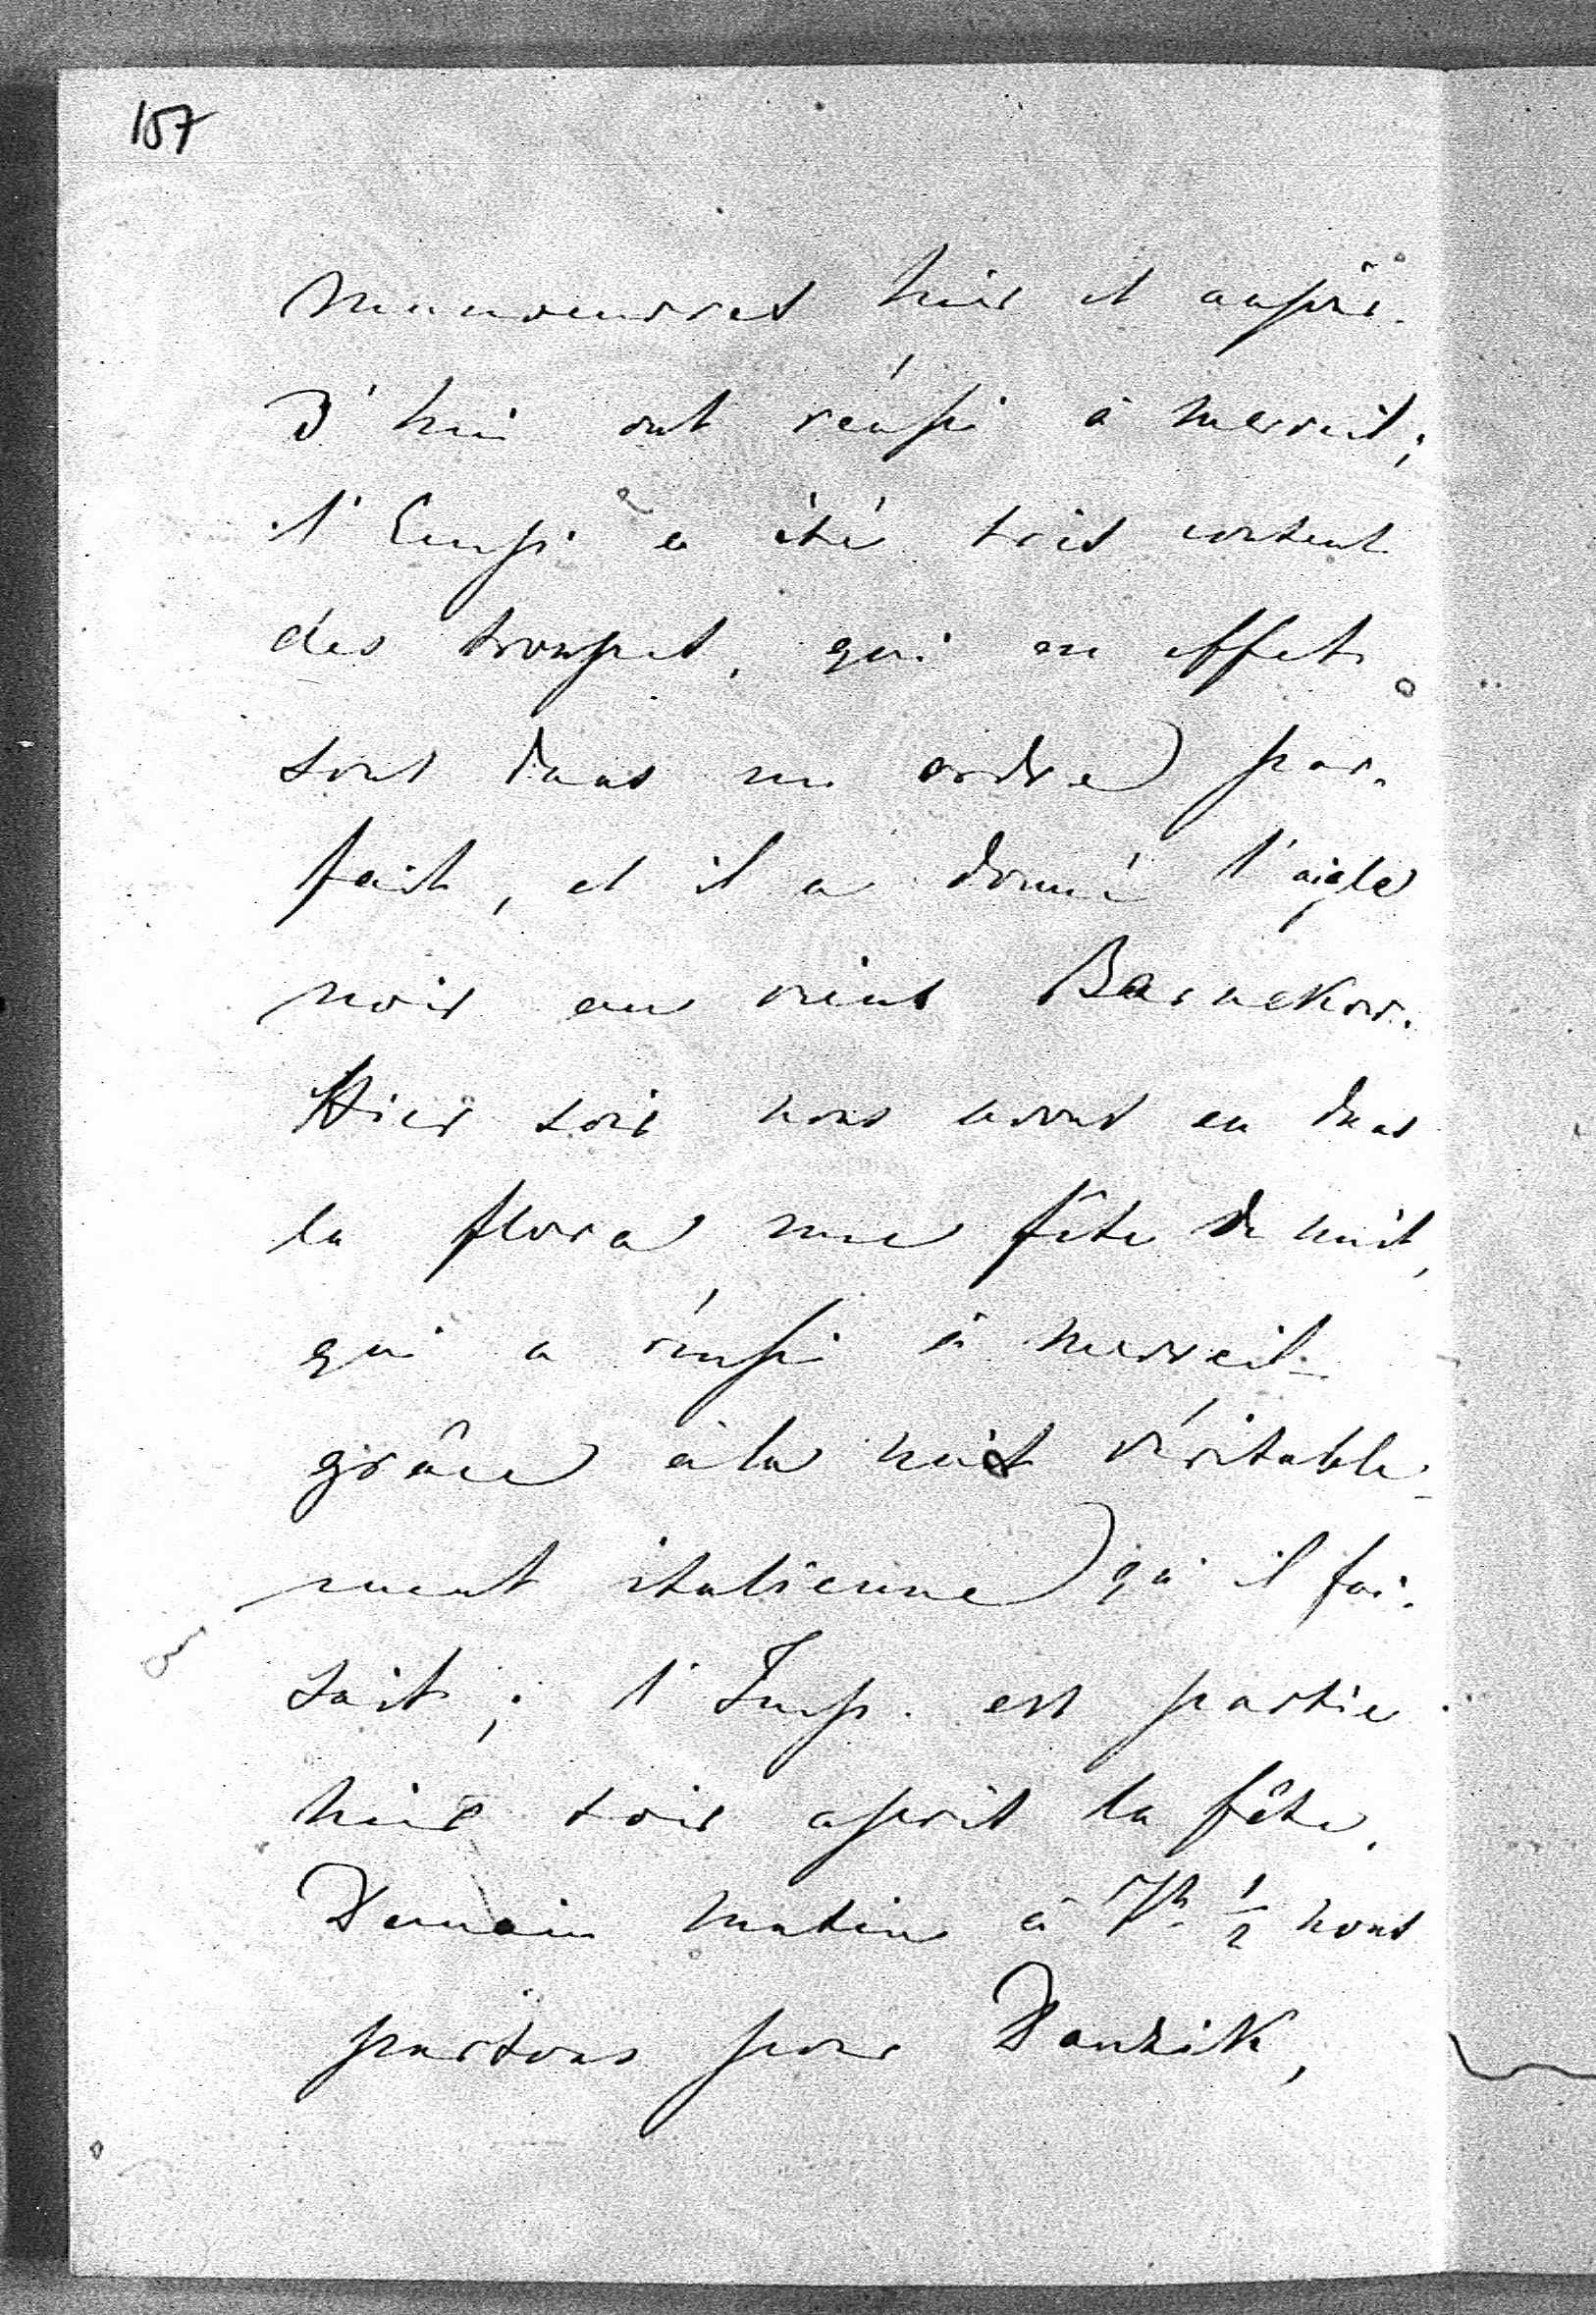 157
manoeuvres hier et aujour-
d'hui ont réussi à merveil;
l'Emp: a été très content
des troupes, qui en effet
sont dans un ordre par-
fait, et il a donné l'aigle
noir au vieux Barnekow.
Hier soir nous avons eu dans
la flora une fête de nuit,
qui a réussi à merveil-
grâce à la nuit véritable-
ment italienne qu'il fai-
sait; l'Imp. est partie
hier soir après la fête.
Demain matin à 7h. 1/2 nous
partons pour Danzik,